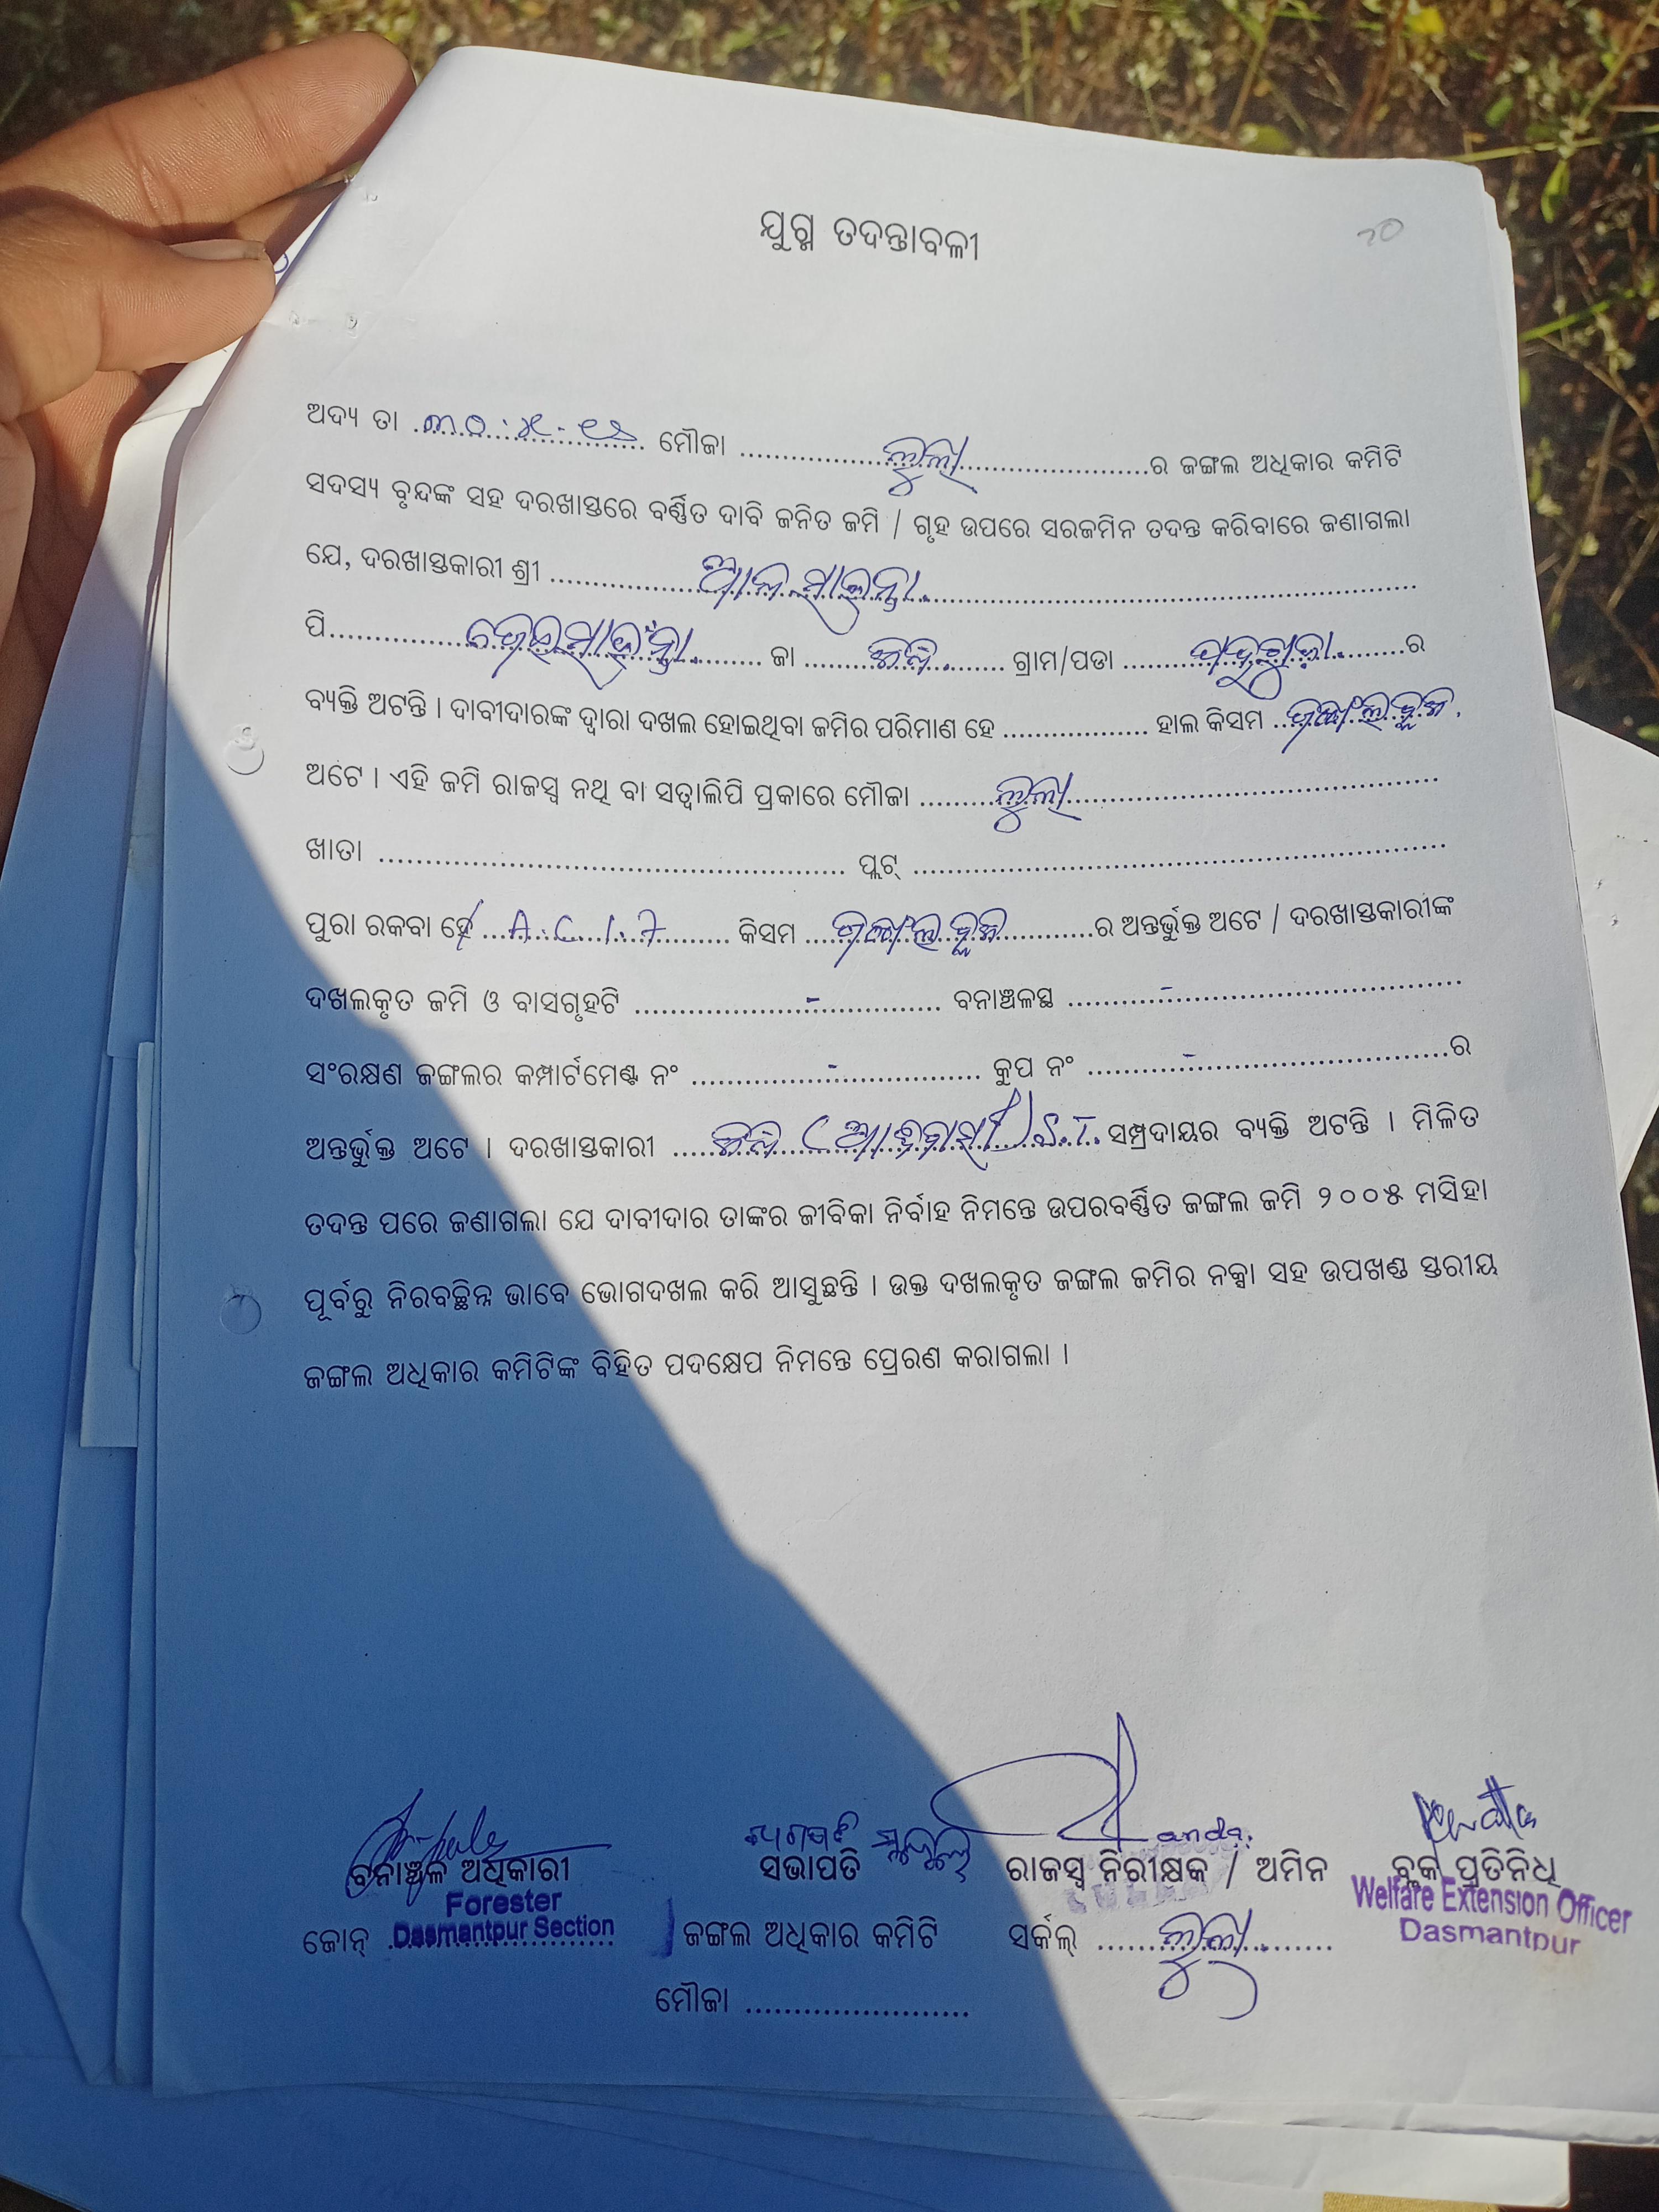 ଯୁଗ୍ମ ତଦନ୍ତାବଳୀ
20
ଅଦ୍ୟ ତା ୩୦.୪.୧୨ ମୌଜା ଲୁଲା ର ଜଙ୍ଗଲ ଅଧିକାର କମିଟି
ସଦସ୍ୟ ବୃନ୍ଦଙ୍କ ସହ ଦରଖାସ୍ତରେ ବର୍ଣ୍ଣିତ ଦାବି ଜନିତ ଜମି / ଗୃହ ଉପରେ ସରଜମିନ ତଦନ୍ତ କରିବାରେ ଜଣାଗଲା
ଯେ, ଦରଖାସ୍ତକାରୀ ଶ୍ରୀ
ପି ଜା ଗ୍ରାମ/ପଡା ର
ବ୍ୟକ୍ତି ଅଟନ୍ତି । ଦାବୀଦାରଙ୍କ ଦ୍ୱାରା ଦଖଲ ହୋଇଥିବା ଜମିର ପରିମାଣ ହେ ହାଲ କିସମ ଜଙ୍ଗଲ ବ୍ଲକ
ଅଟେ । ଏହି ଜମି ରାଜସ୍ୱ ନଥି ବା ସତ୍ୱାଲିପି ପ୍ରକାରେ ମୌଜା ଲୁଲା
ଖାତା ପ୍ଲଟ୍
ପୁରା ରକବା ହେ A.C 1.7 କିସମ ଜଙ୍ଗଲ ବ୍ଲକ ର ଅନ୍ତର୍ଭୁକ୍ତ ଅଟେ / ଦରଖାସ୍ତକାରୀଙ୍କ
ଦଖଲକୃତ ଜମି ଓ ବାସଗୃହଟି - ବନାଞ୍ଚଳସ୍ଥ -
ସଂରକ୍ଷଣ ଜଙ୍ଗଲର କମ୍ପାର୍ଟମେଣ୍ଟ ନଂ - କୁପ ନଂ - ର
ଅନ୍ତର୍ଭୁକ୍ତ ଅଟେ । ଦରଖାସ୍ତକାରୀ (ଆଦିବାସୀ) S.T. ସମ୍ପ୍ରଦାୟର ବ୍ୟକ୍ତି ଅଟନ୍ତି । ମିଳିତ
ତଦନ୍ତ ପରେ ଜଣାଗଲା ଯେ ଦାବୀଦାର ତାଙ୍କର ଜୀବିକା ନିର୍ବାହ ନିମନ୍ତେ ଉପରବର୍ଣ୍ଣିତ ଜଙ୍ଗଲ ଜମି ୨୦୦୫ ମସିହା
ପୂର୍ବରୁ ନିରବଚ୍ଛିନ୍ନ ଭାବେ ଭୋଗଦଖଲ କରି ଆସୁଛନ୍ତି । ଉକ୍ତ ଦଖଲକୃତ ଜଙ୍ଗଲ ଜମିର ନକ୍ସା ସହ ଉପଖଣ୍ଡ ସ୍ତରୀୟ
ଜଙ୍ଗଲ ଅଧିକାର କମିଟିଙ୍କ ବିହିତ ପଦକ୍ଷେପ ନିମନ୍ତେ ପ୍ରେରଣ କରାଗଲା ।
ବନାଞ୍ଚଳ ଅଧିକାରୀ ସଭାପତି ରାଜସ୍ୱ ନିରୀକ୍ଷକ / ଅମିନ ବ୍ଲକ ପ୍ରତିନିଧି
Forester Welfare Extension Officer
ଜୋନ୍ Dasmantpur Section ଜଙ୍ଗଲ ଅଧିକାର କମିଟି ସର୍କଲ୍ ଲୁଲା Dasmantpur
ମୌଜା